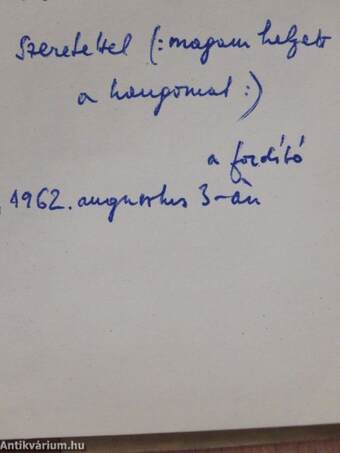 Szeretettel (: magam helyett
a hangomat :)
a fordító
1962. augusztus 3-án
Antikvárium.hu